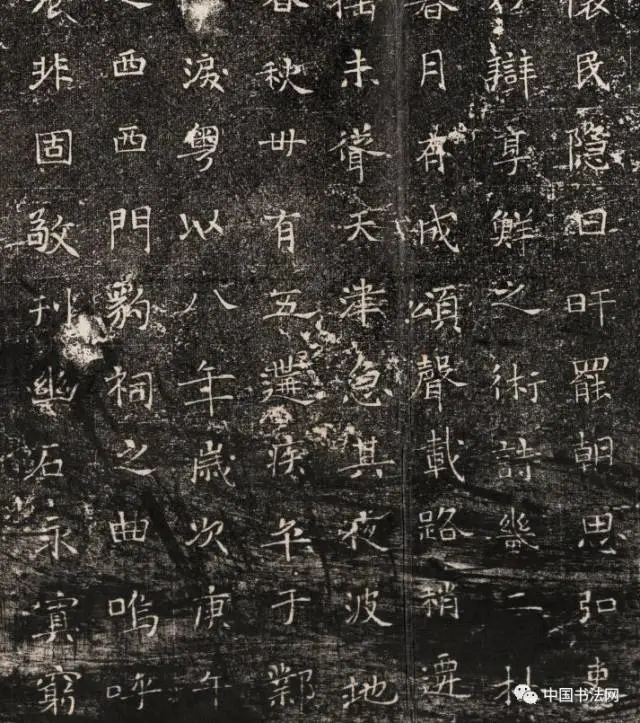 懷民隱日旰罷朝思弘
辯享鮮之術詩幾二朴
月有成頌聲載路稍遷
搖未聳天津急其夜波地
春秋卅有五遘疾卒于鄴
淚粤以八年歲次庚午
之西西門豹祠之曲嗚呼
非固敬刊幽石永寘窮
中国书法网